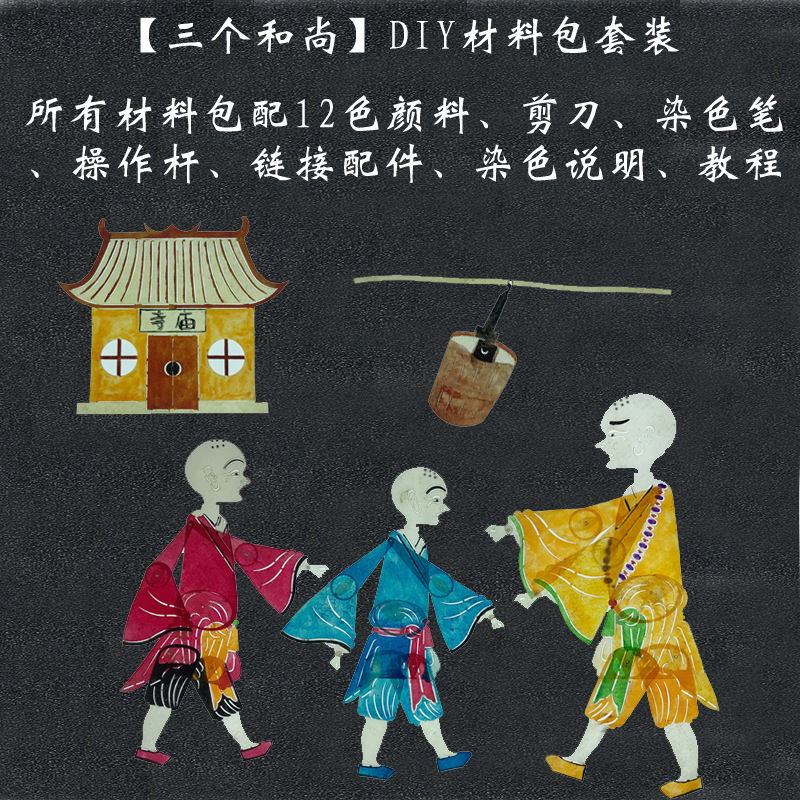 【三个和尚】DIY材料包套装
所有材料包配12色颜料、剪刀、染色笔
、操作杆、链接配件、染色说明、教程
寺庙